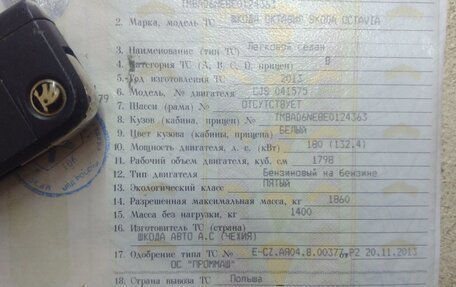 TMBAD6NE0E0124363
2. Марка, модель ТС ШКОДА ОКТАВИЯ SKODA OCTAVIA
3. Наименование (тип ТС) Легковой седан
4. Категория ТС (А, В, С, D, прицеп) B
5. Год изготовления ТС 2013
6. Модель, № двигателя CJS 041575
7. Шасси (рама) № ОТСУТСТВУЕТ
8. Кузов (кабина, прицеп) № TMBAD6NE0E0124363
9. Цвет кузова (кабины, прицепа) БЕЛЫЙ
10. Мощность двигателя, л. с. (кВт) 180 (132.4)
11. Рабочий объем двигателя, куб. см 1798
12. Тип двигателя Бензиновый на бензине
13. Экологический класс ПЯТЫЙ
14. Разрешенная максимальная масса, кг 1860
15. Масса без нагрузки, кг 1400
16. Изготовитель ТС (страна)
ШКОДА АВТО А.С (ЧЕХИЯ)
17. Одобрение типа ТС № E-CZ.АЯ04.В.00377.Р2 от 20.11.2013
ОС "ПРОММАШ"
18. Страна вывоза ТС Польша
79